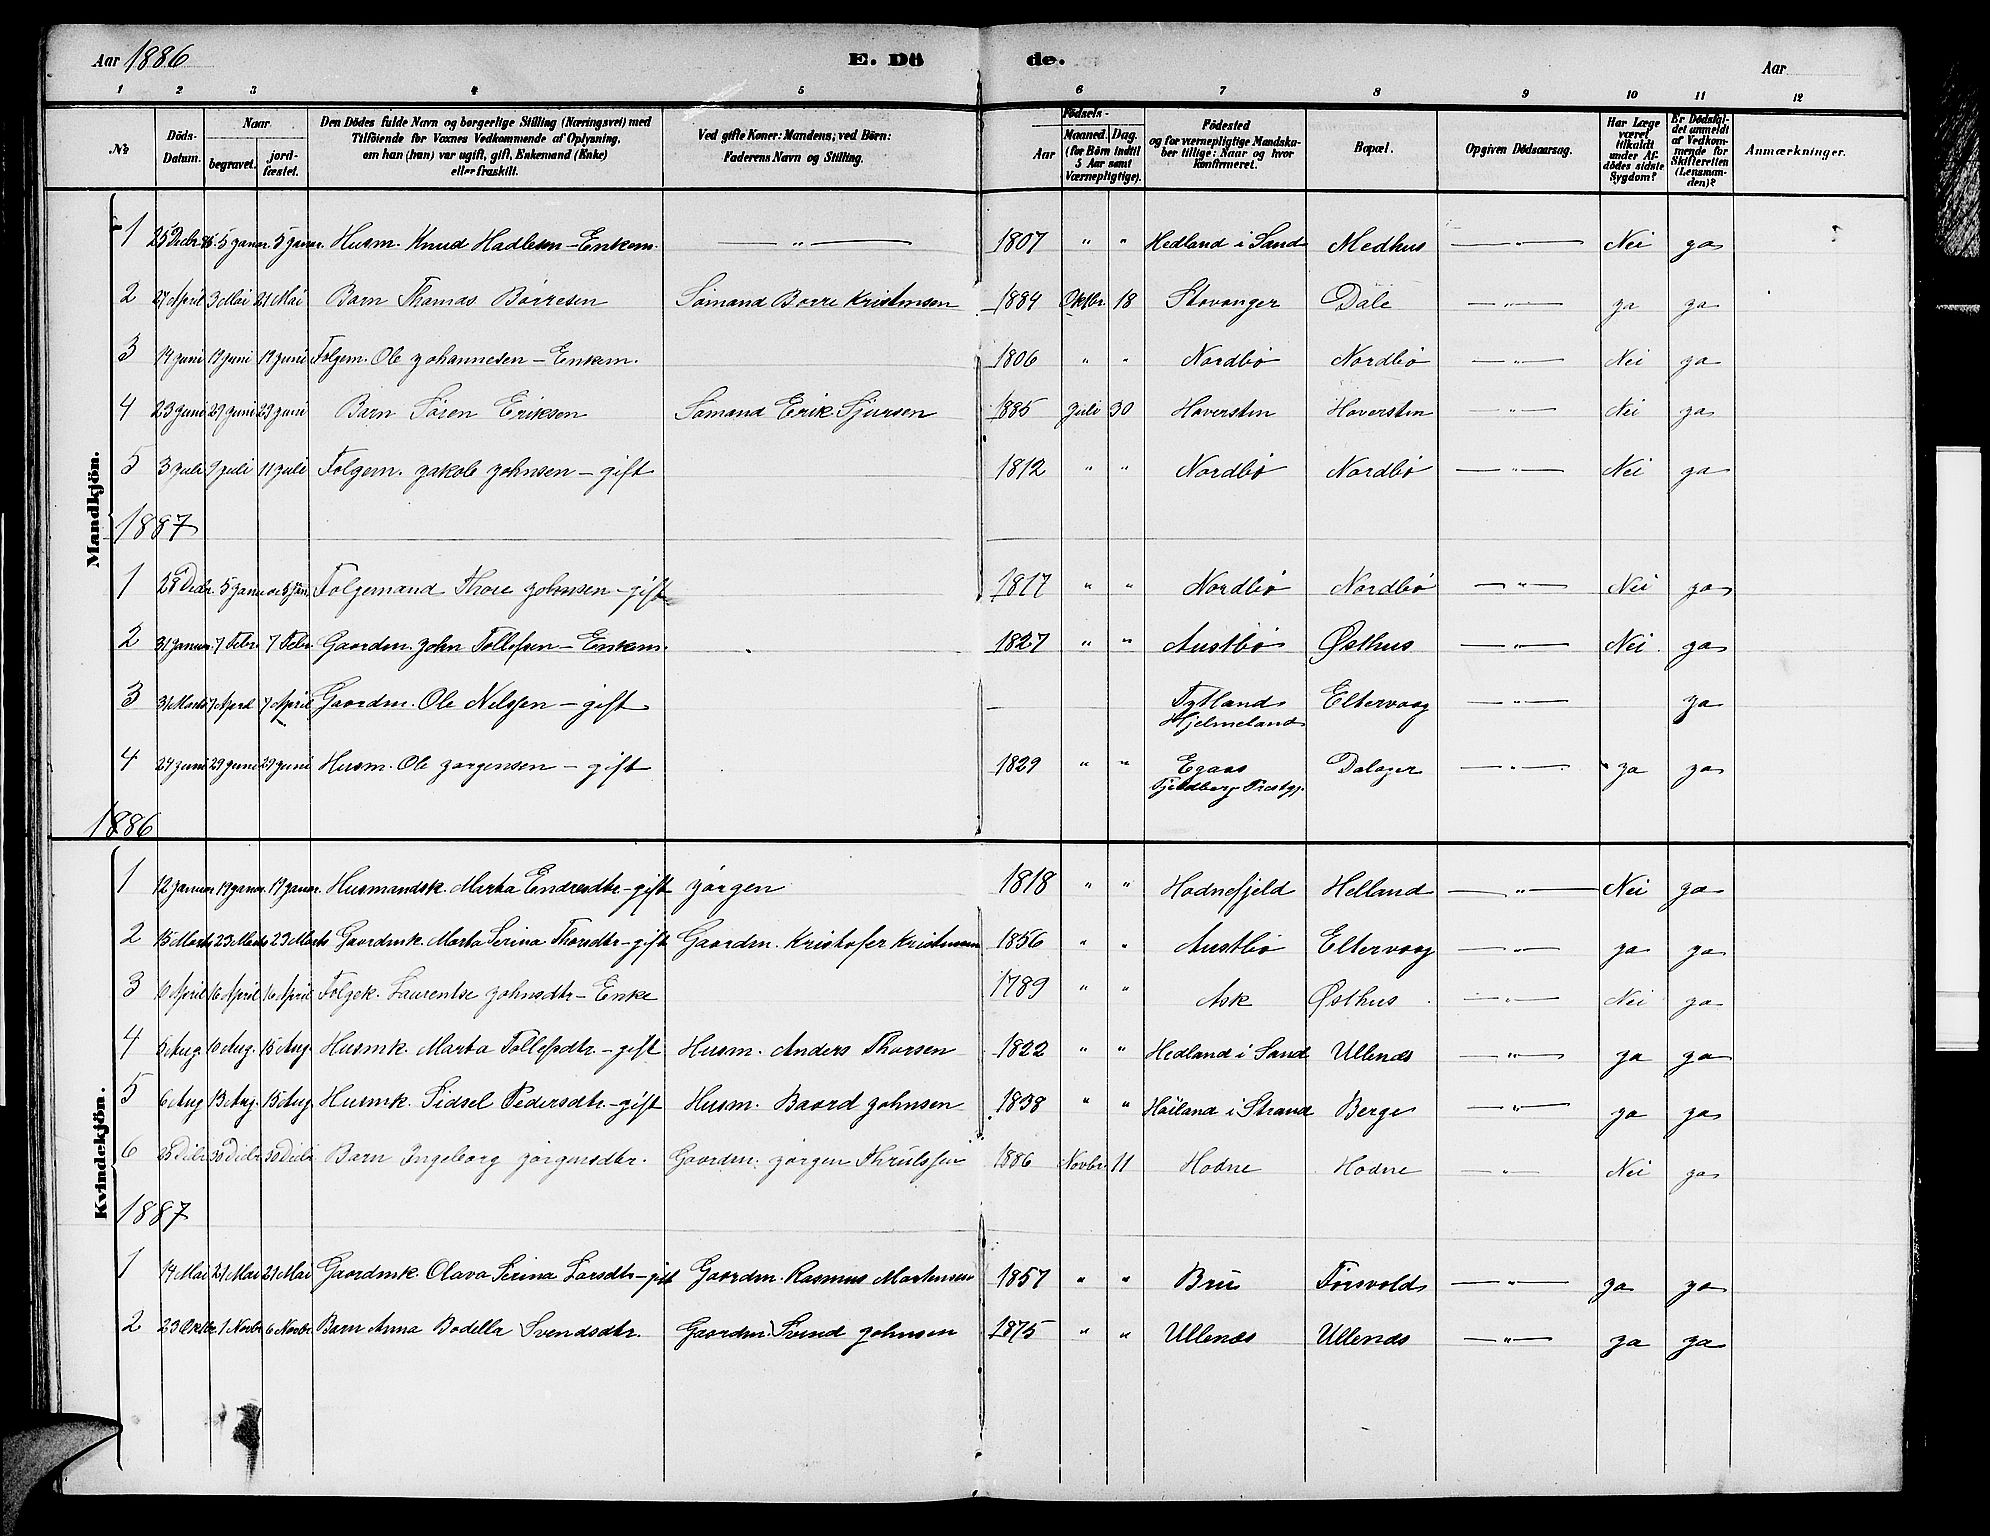 Aar 1886 E. Dö de. Aar
1 2 3 4 5 6 7 8 9 10 11 12
No
Döds-Datum.
Naar
begravet.
jord-fæstet.
Den Dödes fulde Navn og borgerlige Stilling (Næringsvei) med
Tilföiende for Voxnes Vedkommende af Oplysning,
om han (hun) var ugift, gift, Enkemand (Enke)
eller fraskilt.
Ved gifte Koner: Mandens; ved Börn:
Faderens Navn og Stilling.
Födsels-
Aar
Maaned. Dag.
(for Börn indtil
5 Aar samt
Værnepligtige).
Födested
og for værnepligtige Mandska-
ber tillige: Naar og hvor
konfirmeret.
Bopæl.
Opgiven Dödsaarsag.
Har Læge
været
tilkaldt
under Af-
dödes sidste
Sygdom?
Er Dödsfal-
det anmeldt
af Vedkom-
mende for
Skifteretten
(Lensman-
den)?
Anmærkninger.
Mandkjön.
1 25 Decbr. 85. 5 Januar. 5 Januar. Husm. Knud Hadlesen – Enkem. — „ — 1807 „ „ Hedland i Sand Medhus — „ — Nei ja
2 27 April 3 Mai 21 Mai Barn Thomas Börresen Sömand Börre Kristensen 1884 Oktbr. 18 Stavanger Dale — „ — ja ja
3 14 Juni 19 Juni 19 Juni Folgem. Ole Johannesen – Enkem. 1806 „ „ Nordbö Nordbö — „ — Nei ja
4 23 Juni 29 Juni 29 Juni Barn Sören Eriksen Sömand Erik Sjursen 1885 Juli 30 Haversten Haversten — „ — Nei ja
5 3 Juli 9 Juli 11 Juli Folgem. Jakob Johnsen – gift 1812 „ „ Nordbö Nordbö — „ — Nei ja
1887
1 28 Decbr. 5 Januar 5 Jan. Folgemand Thore Johnsen – gift 1817 „ „ Nordbö Nordbö — „ — Nei ja
2 31 Januar. 7 Febr. 7 Febr. Gaardm. John Tollefsen – Enkem. 1827 „ „ Austbö Østhus — „ — Nei ja
3 31 Marts 7 April 7 April Gaardm. Ole Nilssen – gift — Tytland Eltervaag — „ — ja
Hjelmeland
4 24 Juni 29 Juni 29 Juni Husm. Ole Jörgensen – gift 1829 „ „ Egaas Dalager — „ — ja ja
Fjeldberg Prestgj.
1886
Kvindekjön.
1 12 Januar 19 Januar. 19 Januar. Husmandsk. Marta Endresdtr – gift Jörgen 1818 „ „ Hodnefjeld Helland — „ — Nei ja
2 15 Marts 23 Marts 23 Marts Gaardmk. Marta Serina Thorsdtr – gift Gaardm. Kristofer Kristensen 1856 „ „ Austbö Eltervaag — „ — ja ja
3 6 April 16 April 16 April Folgek. Laurentse Johnsdtr – Enke 1789 „ „ Ask Østhus — „ — Nei ja
4 5 Aug. 10 Aug. 15 Aug. Husmk. Marta Tollefsdtr. – gift Husm. Anders Thorsen 1822 „ „ Hedland i Sand Ullenæs — „ — ja ja
5 6 Aug 13 Aug. 15 Aug. Husmk. Sidsel Pedersdtr. – gift Husm. Baard Johnsen 1838 „ „ Höiland i Strand Berge — „ — ja ja
6 25 Decbr 30 Decbr. 30 Decbr Barn Ingeborg Jörgensdtr. Gaardm. Jörgen Thrulssen 1886 Novbr. 11 Hodne Hodne — „ — Nei ja
1887
1 14 Mai 21 Mai 21 Mai Gaardmk. Olava Serina Larsdtr – gift Gaardm. Rasmus Mortensen 1857 „ „ Bru Forsvold — „ — ja ja
2 23 Oktbr 1 Novbr 6 Novbr. Barn Anna Bodella Svendsdtr. Gaardm. Svend Johnsen 1875 „ „ Ullenæs Ullenæs — „ — ja ja